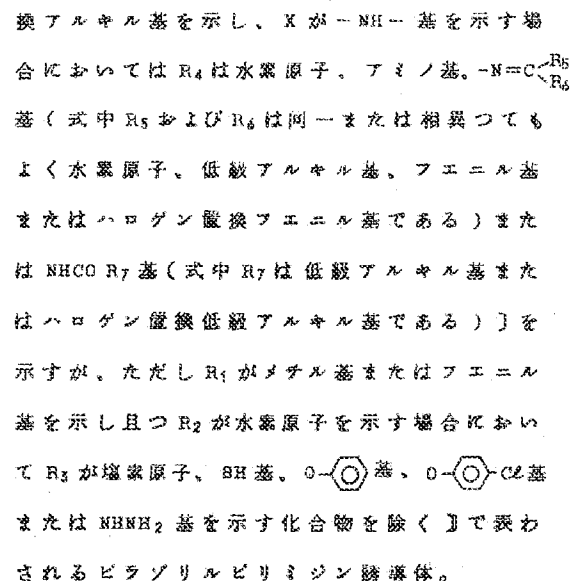 換アルキル基を示し、X が -NH- 基を示す場
合においては R₄ は水素原子、アミノ基、-N=C<R₅ R₆
基 ( 式中 R₅ および R₆ は同一または相異つても
よく水素原子、低級アルキル基、フエニル基
またはハロゲン置換フエニル基である ) また
は NHCO R₇ 基 ( 式中 R₇ は低級アルキル基また
はハロゲン置換低級アルキル基である ) 〕を
示すが、ただし R₁ がメチル基またはフエニル
基を示し且つ R₂ が水素原子を示す場合におい
て R₃ が塩素原子、SH 基、O-基、O-Cl基
または NHNH₂ 基を示す化合物を除く 〕で表わ
されるピラゾリルピリミジン誘導体。